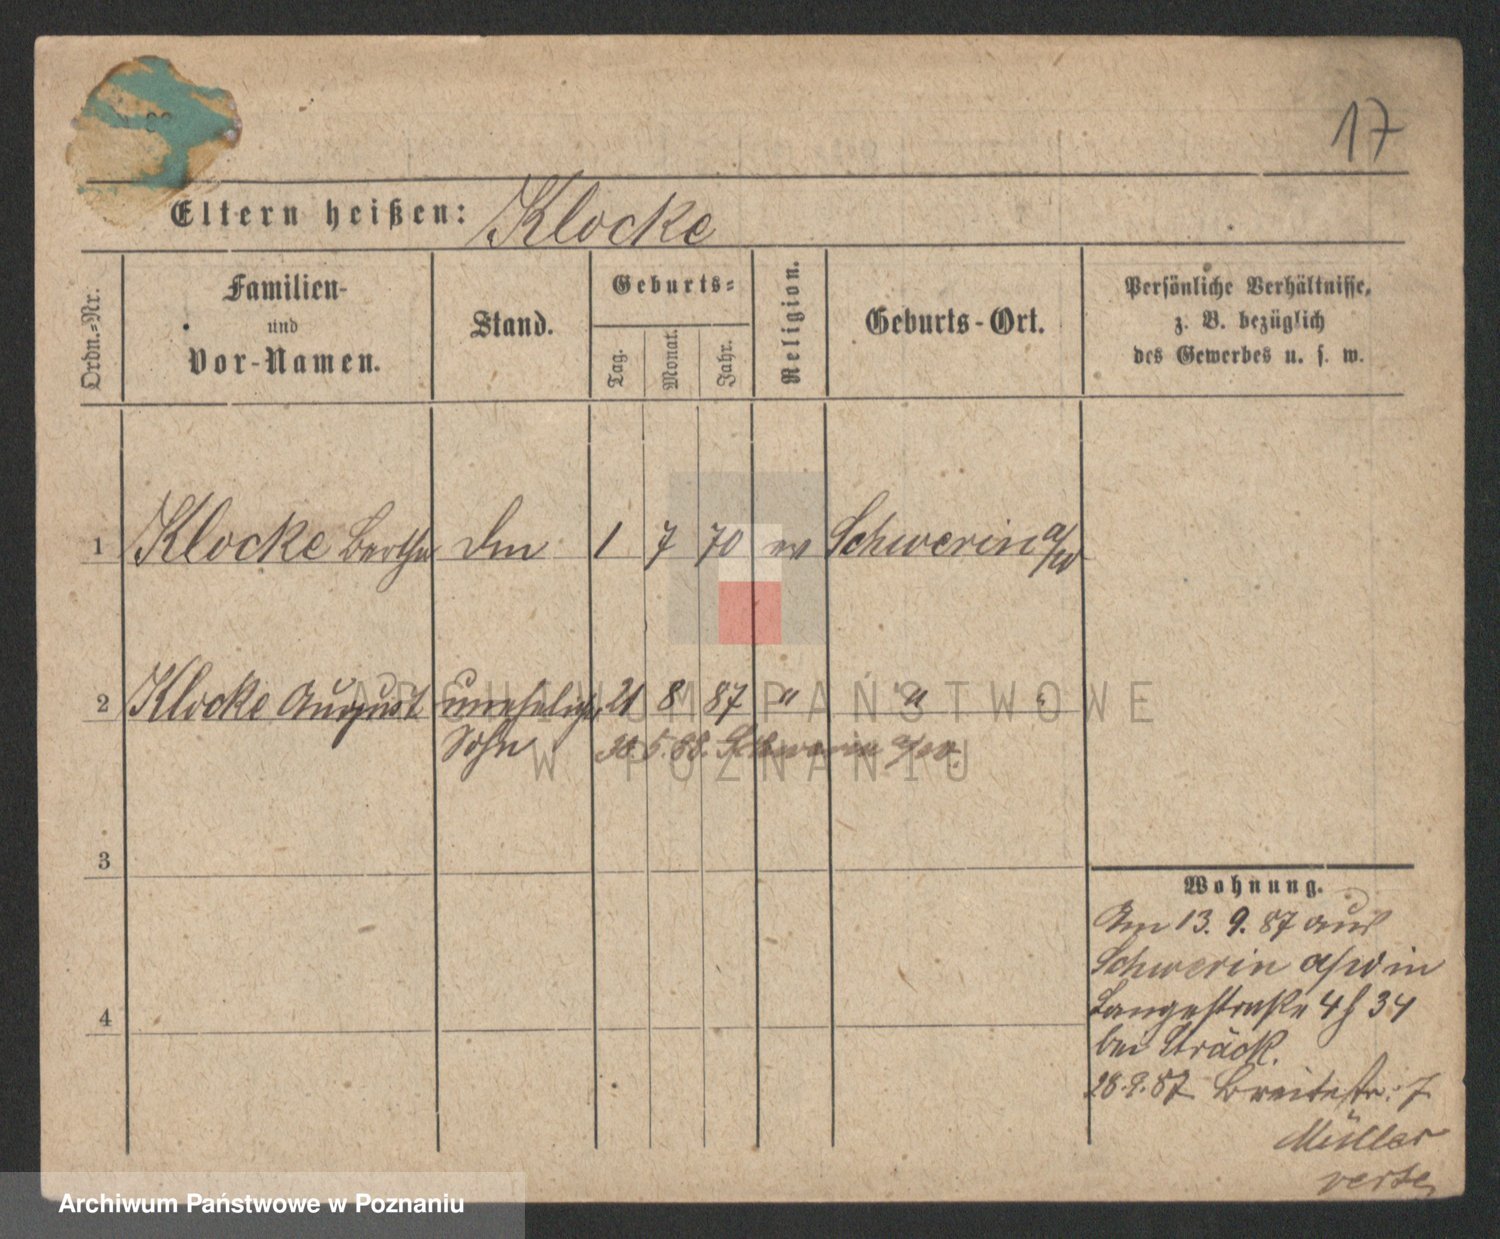 17
Eltern heißen: Klocke
Ordn.-Nr.
Familien- und Vor-Namen.
Stand.
Geburts-
Tag.
Monat.
Jahr.
Religion.
Geburts-Ort.
Persönliche Verhältnisse,
z. B. bezüglich
des Gewerbes u. s. w.
1 Klocke Bertha 1 7 70 ev Schwerin a/W
2 Klocke August unehelicher 21 8 87 " " "
Sohn 30. 5. 88. Schwerin a/W.
3
4
Wohnung.
Am 13. 9. 87 aus
Schwerin a/W in
Langestraße 34
bei Sträck.
28.9.87 Breitestr. 7
Müller
verte
ARCHIWUM PAŃSTWOWE
W POZNANIU
Archiwum Państwowe w Poznaniu